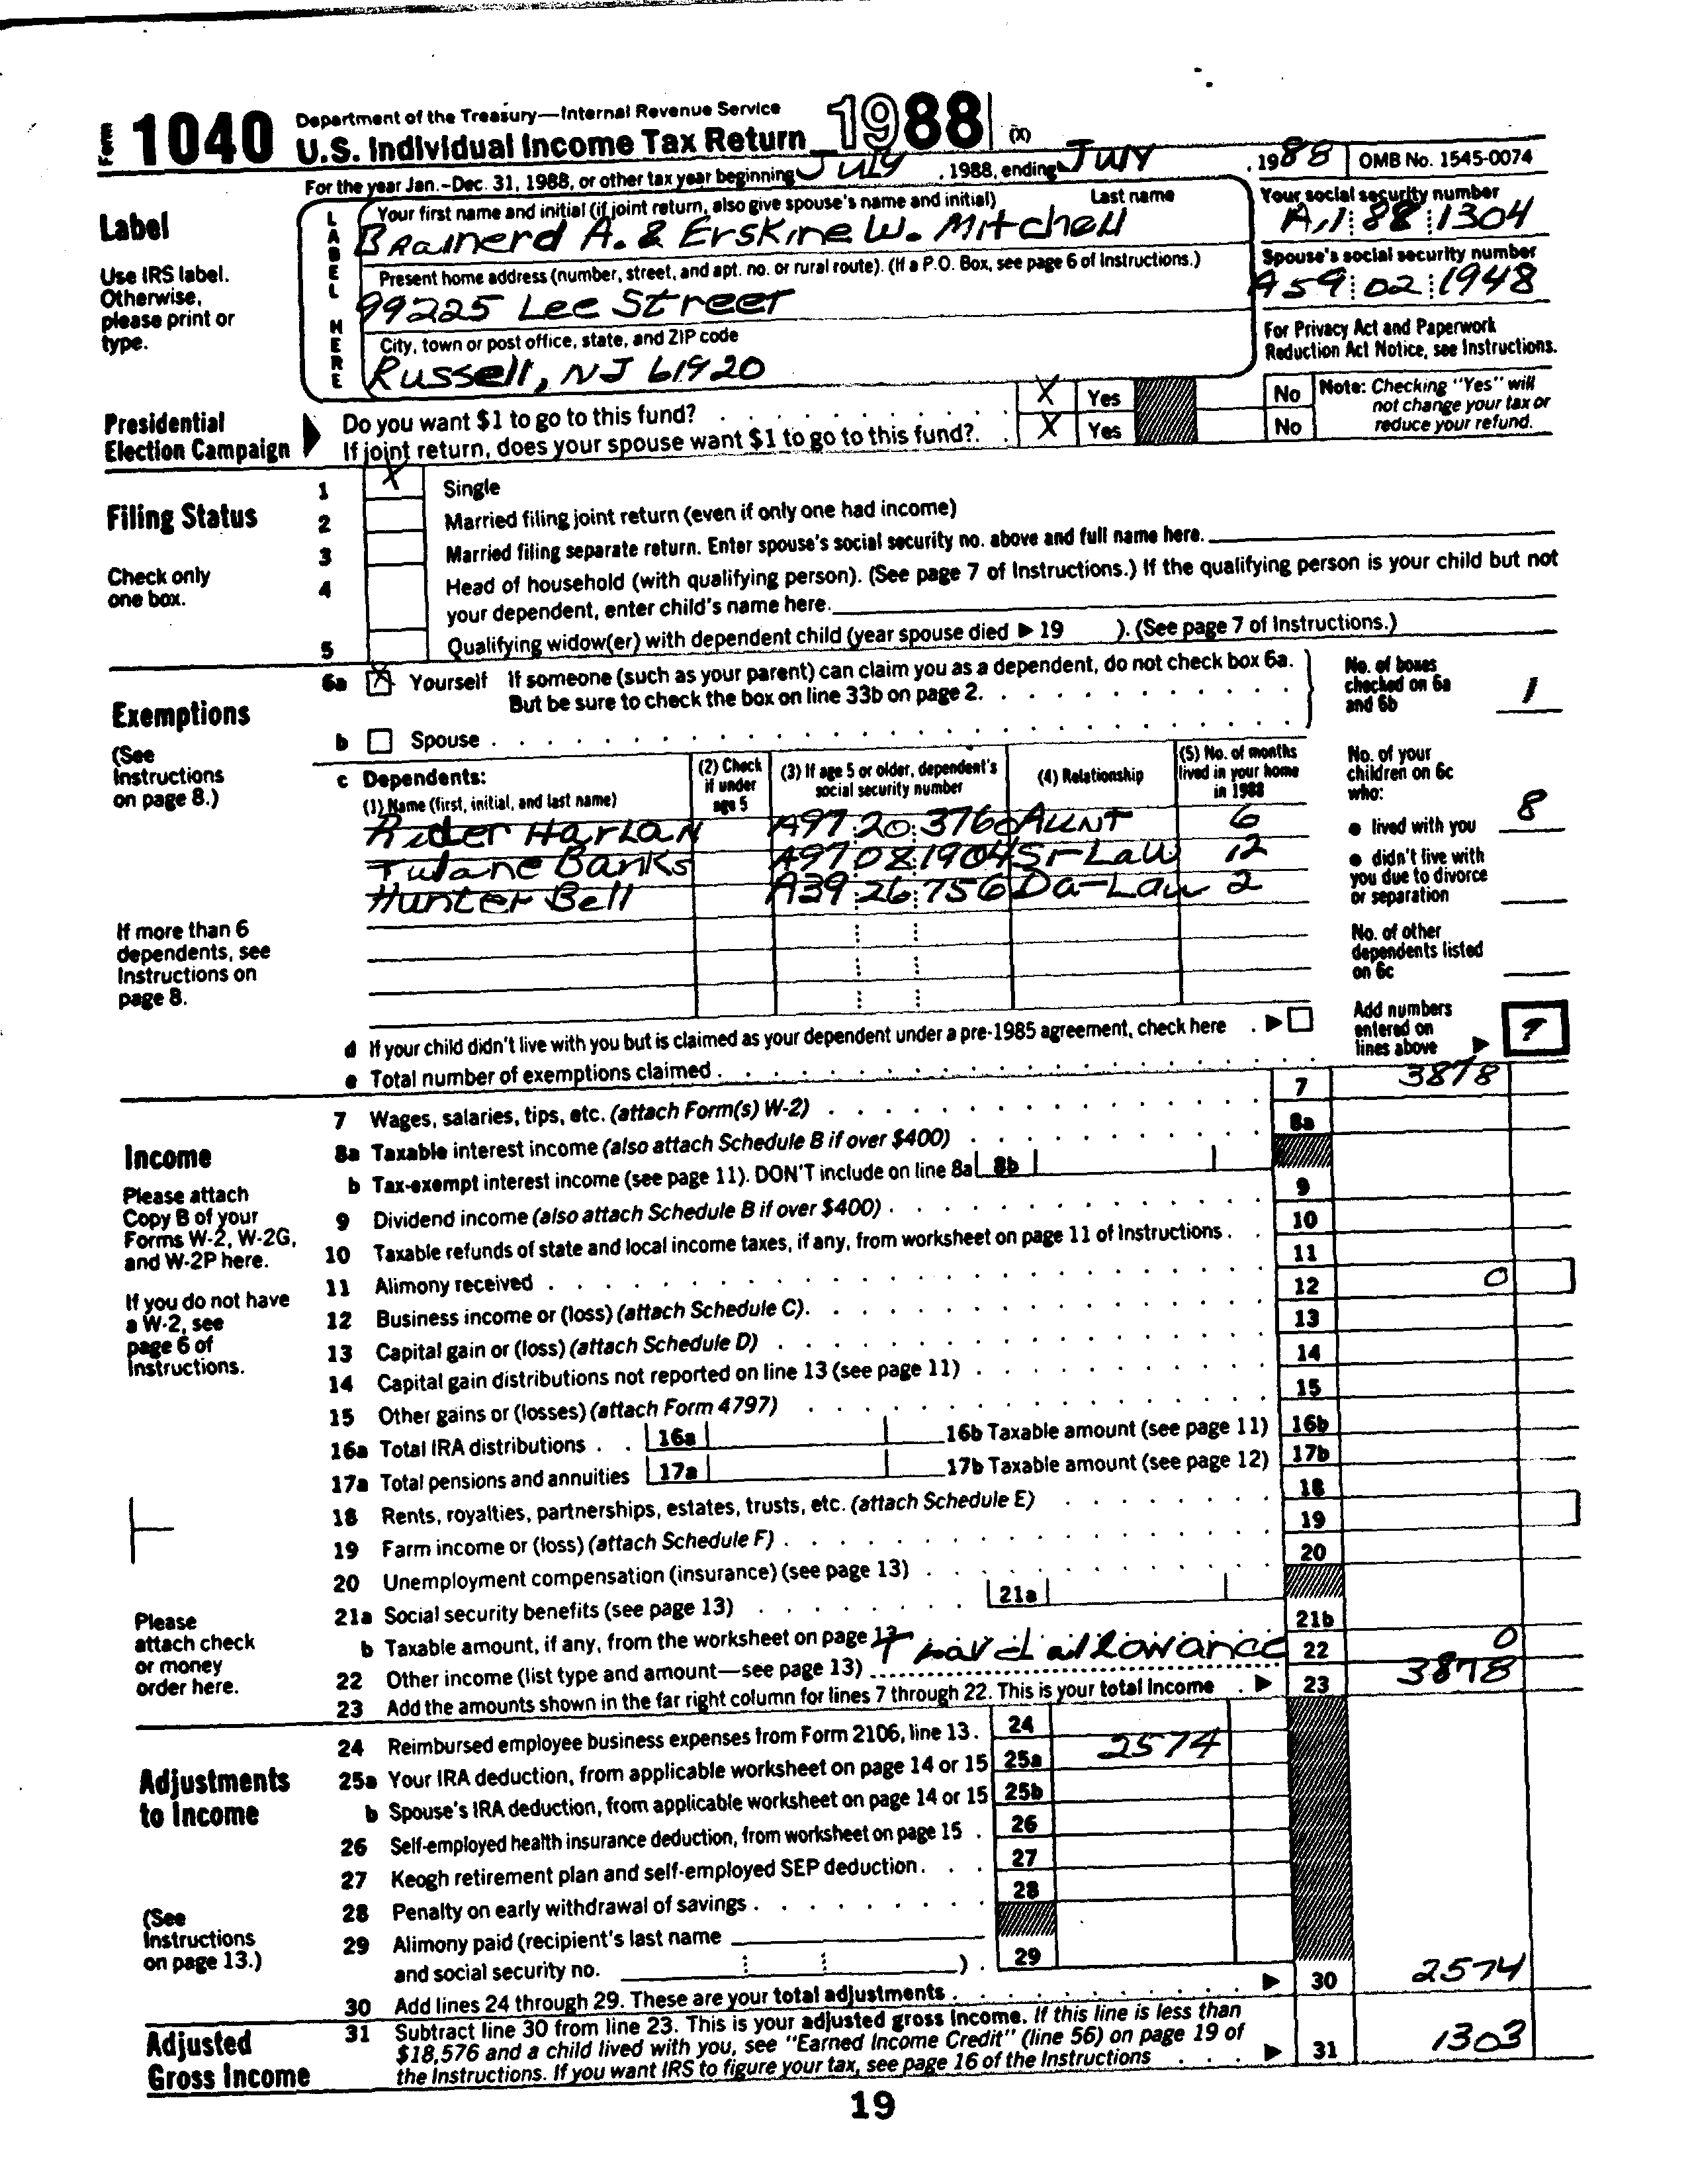 Form 1040 Department of the Treasury—Internal Revenue Service
U.S. Individual Income Tax Return 1988 (X)
For the year Jan.-Dec. 31, 1988, or other tax year beginning July , 1988, ending July , 1988 OMB No. 1545-0074
Label
Use IRS label.
Otherwise,
please print or
type.
LABEL HERE
Your first name and initial (if joint return, also give spouse's name and initial) Last name
Brainerd A. & Erskine W. Mitchell
Your social security number
88 1304
Present home address (number, street, and apt. no. or rural route). (If a P.O. Box, see page 6 of Instructions.)
99225 Lee Street
Spouse's social security number
A59 02 1948
City, town or post office, state, and ZIP code
Russell, NJ 61920
For Privacy Act and Paperwork
Reduction Act Notice, see Instructions.
Presidential
Election Campaign
Do you want $1 to go to this fund? X Yes No
If joint return, does your spouse want $1 to go to this fund? X Yes No
Note: Checking "Yes" will
not change your tax or
reduce your refund.
Filing Status
Check only
one box.
1 X Single
2 Married filing joint return (even if only one had income)
3 Married filing separate return. Enter spouse's social security no. above and full name here.
4 Head of household (with qualifying person). (See page 7 of Instructions.) If the qualifying person is your child but not
your dependent, enter child's name here.
5 Qualifying widow(er) with dependent child (year spouse died ▶ 19 ). (See page 7 of Instructions.)
Exemptions
(See
Instructions
on page 8.)
6a X Yourself If someone (such as your parent) can claim you as a dependent, do not check box 6a.
But be sure to check the box on line 33b on page 2.
b Spouse
No. of boxes
checked on 6a
and 6b 1
c Dependents:
(1) Name (first, initial, and last name)
(2) Check
if under
age 5
(3) If age 5 or older, dependent's
social security number
(4) Relationship
(5) No. of months
lived in your home
in 1988
Rider Harlan A97 20 3760 Aunt 6
Tulane Banks A97 08 1904 Si-Law 12
Hunter Bell A39 26 756 Da-Law 2
If more than 6
dependents, see
Instructions on
page 8.
No. of your
children on 6c
who:
● lived with you 8
● didn't live with
you due to divorce
or separation
No. of other
dependents listed
on 6c
d If your child didn't live with you but is claimed as your dependent under a pre-1985 agreement, check here ▶
e Total number of exemptions claimed
Add numbers
entered on
lines above ▶ 9
Income
Please attach
Copy B of your
Forms W-2, W-2G,
and W-2P here.
If you do not have
a W-2, see
page 6 of
Instructions.
7 Wages, salaries, tips, etc. (attach Form(s) W-2) 7 3878
8a Taxable interest income (also attach Schedule B if over $400) 8a
b Tax-exempt interest income (see page 11). DON'T include on line 8a 8b
9 Dividend income (also attach Schedule B if over $400) 9
10 Taxable refunds of state and local income taxes, if any, from worksheet on page 11 of Instructions 10
11 Alimony received 11
12 Business income or (loss) (attach Schedule C). 12 0
13 Capital gain or (loss) (attach Schedule D) 13
14 Capital gain distributions not reported on line 13 (see page 11) 14
15 Other gains or (losses) (attach Form 4797) 15
16a Total IRA distributions 16a 16b Taxable amount (see page 11) 16b
17a Total pensions and annuities 17a 17b Taxable amount (see page 12) 17b
18 Rents, royalties, partnerships, estates, trusts, etc. (attach Schedule E) 18
19 Farm income or (loss) (attach Schedule F) 19
20 Unemployment compensation (insurance) (see page 13) 20
21a Social security benefits (see page 13) 21a
b Taxable amount, if any, from the worksheet on page 13 21b
22 Other income (list type and amount—see page 13) Travel allowance 22 0
23 Add the amounts shown in the far right column for lines 7 through 22. This is your total income ▶ 23 3878
Please
attach check
or money
order here.
Adjustments
to Income
(See
Instructions
on page 13.)
24 Reimbursed employee business expenses from Form 2106, line 13. 24
25a Your IRA deduction, from applicable worksheet on page 14 or 15 25a 2574
b Spouse's IRA deduction, from applicable worksheet on page 14 or 15 25b
26 Self-employed health insurance deduction, from worksheet on page 15 26
27 Keogh retirement plan and self-employed SEP deduction 27
28 Penalty on early withdrawal of savings 28
29 Alimony paid (recipient's last name
and social security no. ) 29
30 Add lines 24 through 29. These are your total adjustments ▶ 30 2574
Adjusted
Gross Income
31 Subtract line 30 from line 23. This is your adjusted gross income. If this line is less than
$18,576 and a child lived with you, see "Earned Income Credit" (line 56) on page 19 of
the Instructions. If you want IRS to figure your tax, see page 16 of the Instructions ▶ 31 1303
19